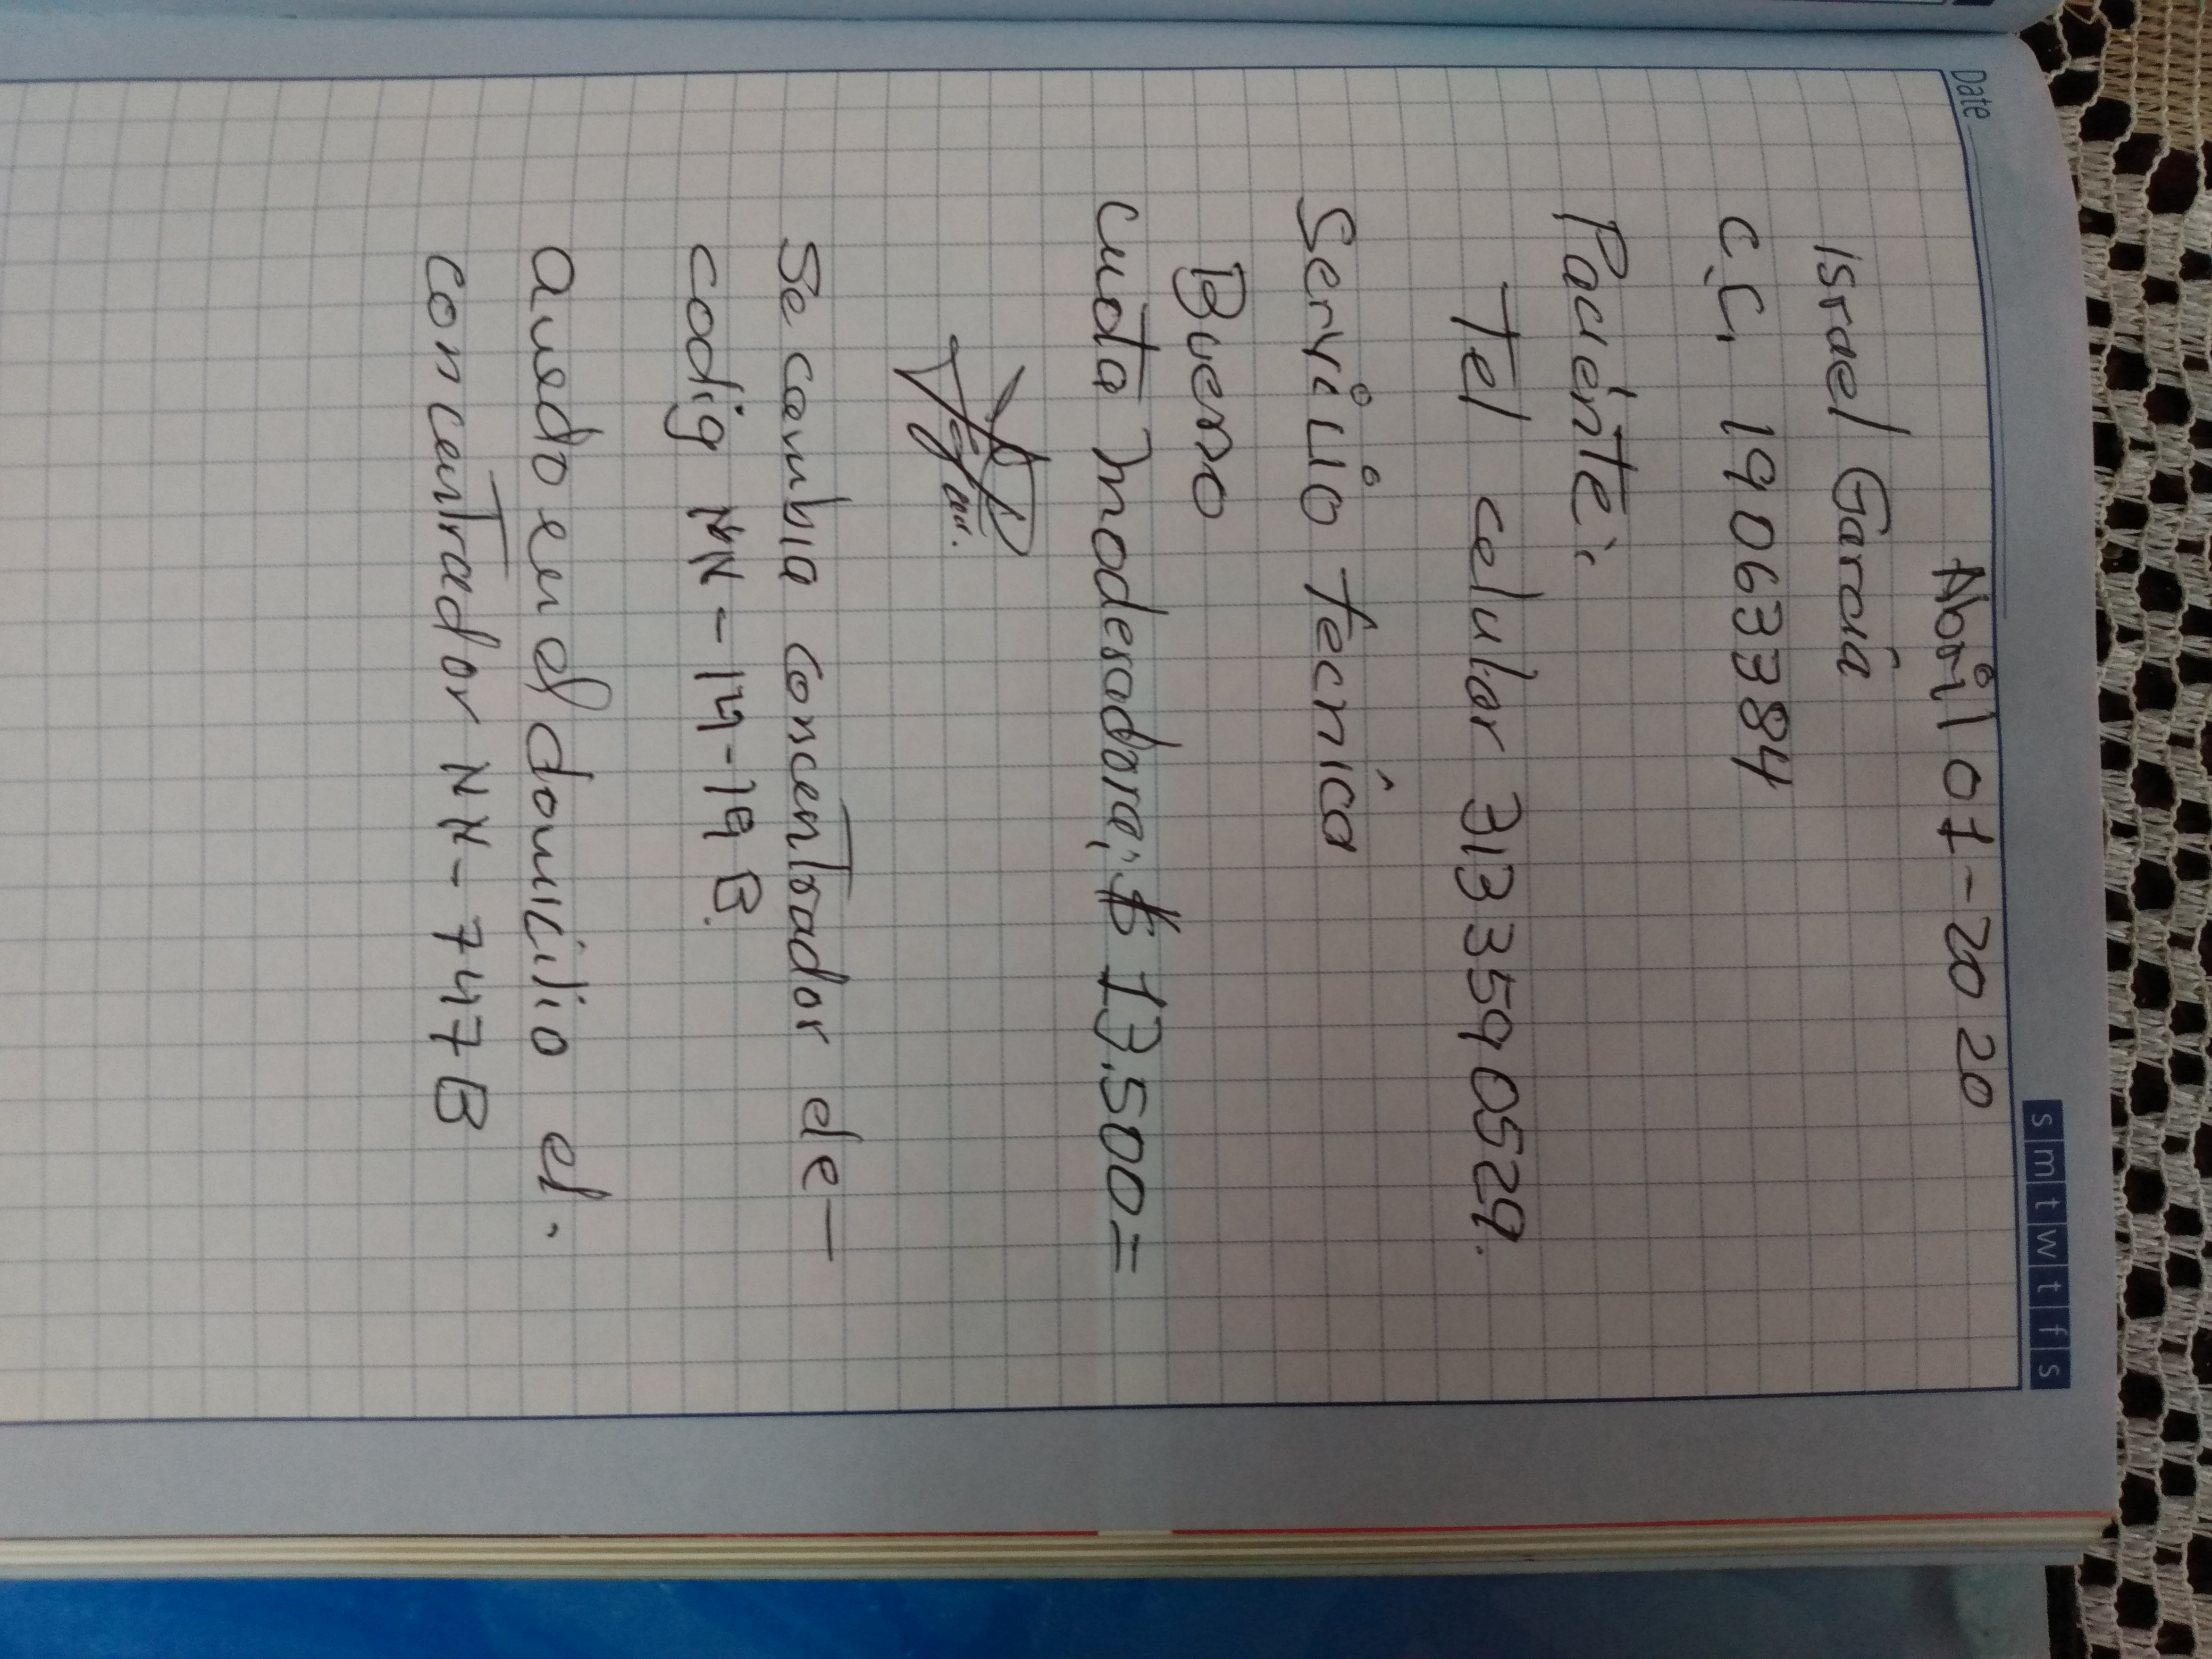 Date
s m t w t f s
Abril 01-2020
Israel García
C.C. 19063384
Paciente:
Tel celular 313 359 0529.
Servicio técnico
Bueno
cuota moderadora; $ 13.500=
Se cambia concentrador de-
codig NN-14-19 B.
Quedo en el domicilio el.
concentrador NN-747 B